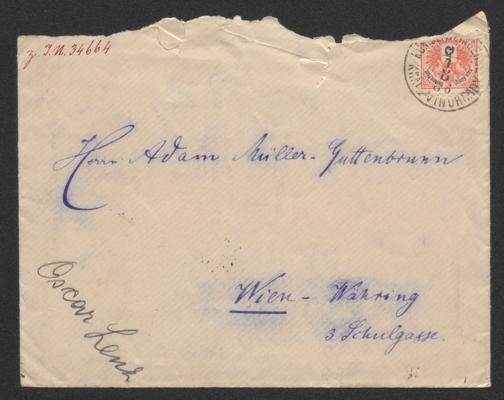 z. I.N. 34664
Herrn Adam Müller-Guttenbrunn
Wien - Währing
3 Schulgasse.
Oscar Lenz